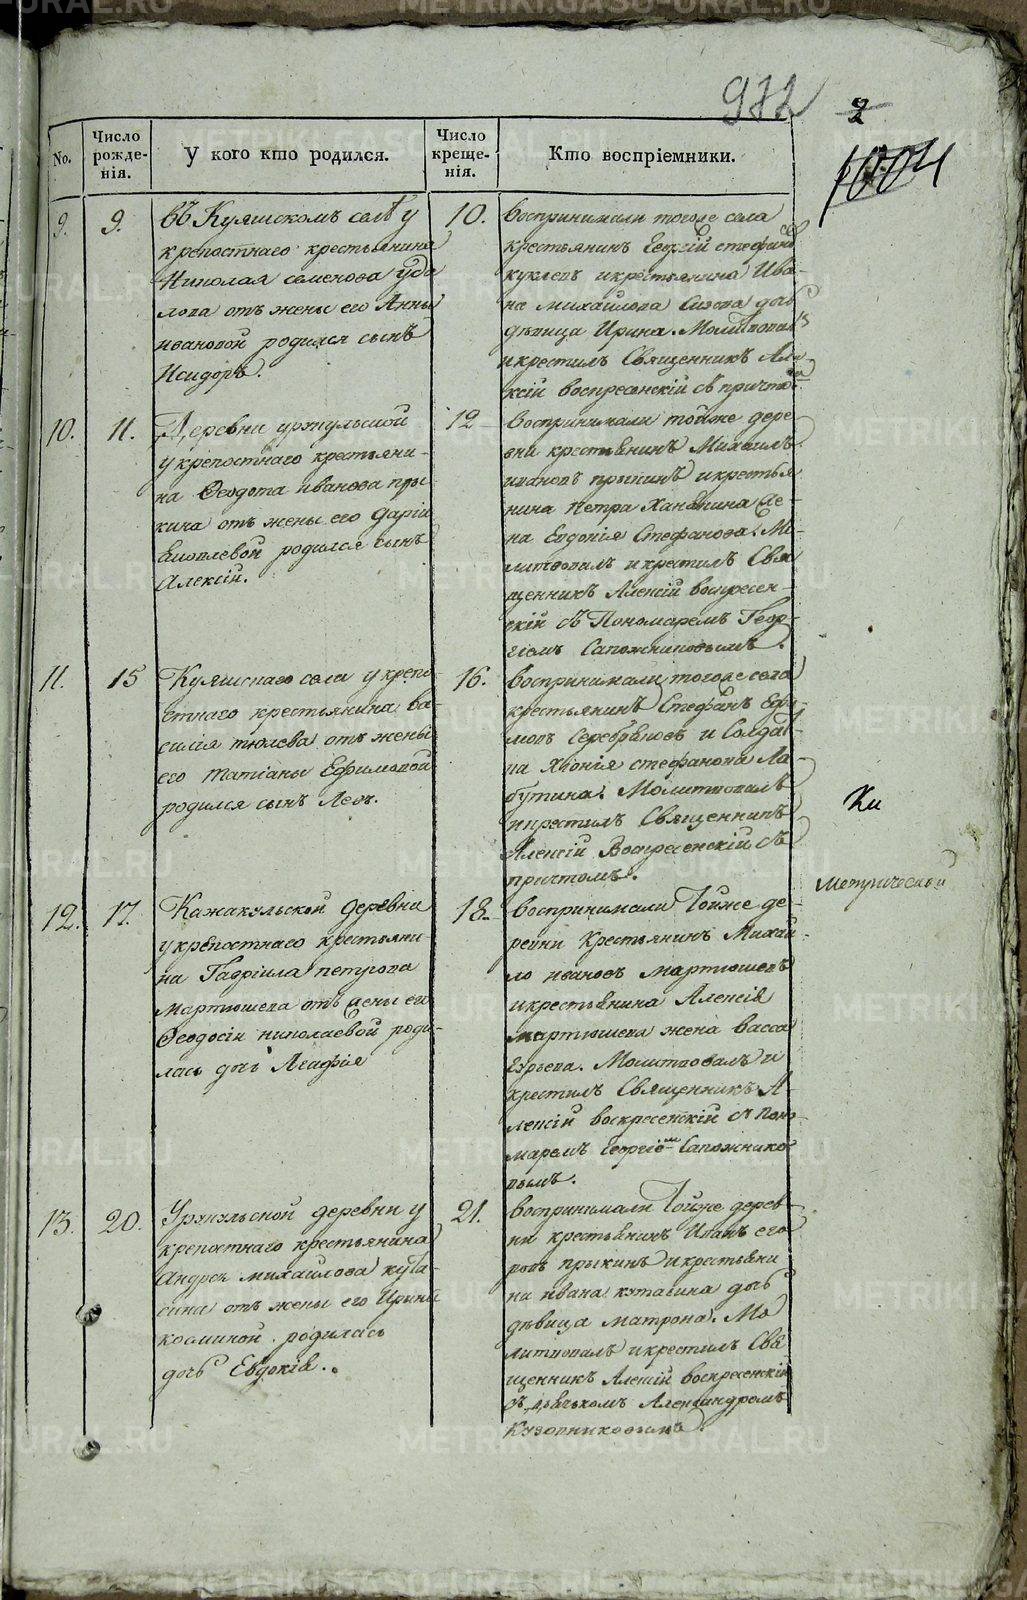 972
2
1004
No.
Число рожде-нія.
У кого кто родился.
Число креще-нія.
Кто воспріемники.
9.
9.
въ Куяшскомъ селѣ у
крепостнаго крестьянина
Николая семенова Уда
лова отъ жены его Анны
ивановой родился сынъ
Исидоръ.
10.
воспринимали тогоже села
крестьянинъ Георгій стефановъ
куклевъ и крестьянина Ива-
на михайлова Сизова дочь
дѣвица Ирина. Молитвовалъ
и крестилъ Священникъ Але-
ксій воспресенскій съ причтомъ
10.
11.
Деревни уржульской
у крепостнаго крестьяни-
на Ѳеодота иванова пры
кина отъ жены его Даріи
родился сынъ
Алексій.
12
воспринимали тойже дере
вни крестьянинъ Михаилъ
ивановъ прыкинъ и крестья
нина Петра Ханькина же-
на Евдокія Стефанова. Мо-
литвовалъ и крестилъ Свя
щенникъ Алексій воспресен-
скій съ Пономаремъ Геор-
гіемъ Сапожниковымъ.
11.
15
Куяшскаго села у крепо-
стнаго крестьянина ва-
силія тюлева отъ жены
его татіаны Ефимовой
родился сынъ Левъ.
16.
воспринимали тогоже села
крестьянинъ Стефанъ Ефи-
мовъ Серебряковъ и Солдат-
ка Хіонія стефанова Ла-
бутина. Молитвовалъ
и крестилъ Священникъ
Алексій Воспресенскій съ
причтомъ.
Ки
12.
17.
Кажакульской деревни
у крепостнаго крестьяни-
на Гавріила петрова
мартюшева отъ жены его
Ѳеодосіи николаевой роди-
лась дочь Агафія
18.
воспринимали тойже де-
ревни Крестьянинъ Михай-
ло ивановъ мартюшевъ
и крестьянина Алексія
мартюшева жена васса
Егорьева. Молитвовалъ и
крестилъ Священникъ А-
лексій воскресенскій съ поно-
маремъ георгіемъ Сапожнико-
вымъ.
13.
20.
Уржульской деревни у
крепостнаго крестьянина
Андрея михайлова кута-
сина отъ жены его Ирины
косминой родилась
дочь Евдокія.
21.
воспринимали тойже дерев-
ни крестьянинъ Иванъ его
ровъ прыкинъ и крестьяни
на ивана кутасина дочь
дѣвица матрона. Мо
литвовалъ и крестилъ Свя
щенникъ Алексій воскресенскій
съ дьячкомъ Александромъ
METRIKI.GASU-URAL.RU